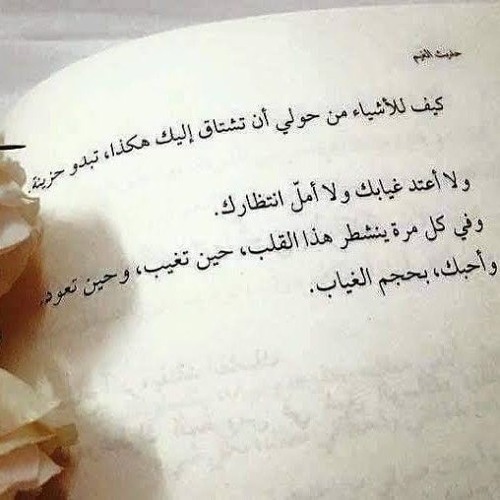 حديث الغيم
كيف للأشياء من حولي أن تشتاق إليك هكذا، تبدو حزينة.
ولا أعتد غيابك ولا أملّ انتظارك.
وفي كل مرة ينشطر هذا القلب، حين تغيب، وحين تعود.
وأحبك، بحجم الغياب.